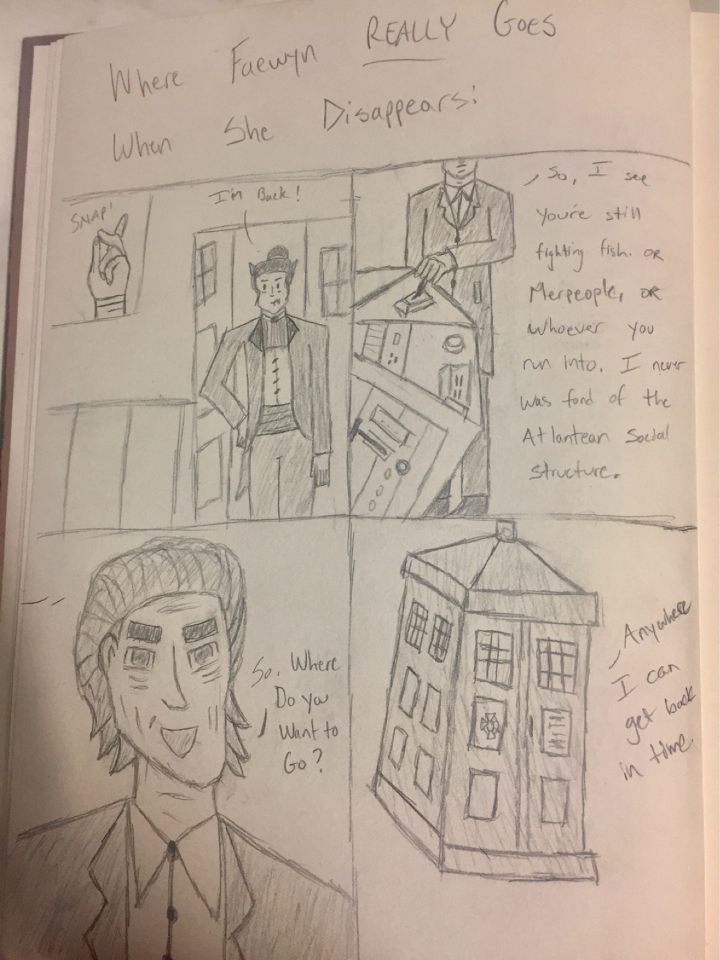 Where Faewyn REALLY Goes
When She Disappears:
SNAP!
I'm Back!
So, I see
you're still
fighting fish. OR
Merpeople, OR
whoever you
run into. I never
was fond of the
Atlantean Social
structure.
So, Where
Do you
Want to
Go?
Anywhere
I can
get back
in time.